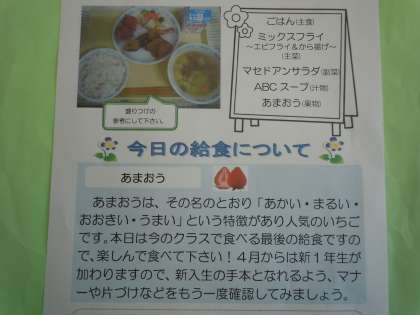 ごはん(主食)
ミックスフライ
～エビフライ&から揚げ～
(主菜)
マセドアンサラダ(副菜)
ABCスープ(汁物)
あまおう(果物)
盛りつけの
参考にして下さい。
今日の給食について
あまおう
あまおうは、その名のとおり「あかい・まるい・
おおきい・うまい」という特徴があり人気のいちご
です。本日は今のクラスで食べる最後の給食ですの
で、楽しんで食べて下さい！4月からは新1年生が
加わりますので、新入生の手本となれるよう、マナ
ーや片づけなどをもう一度確認してみましょう。